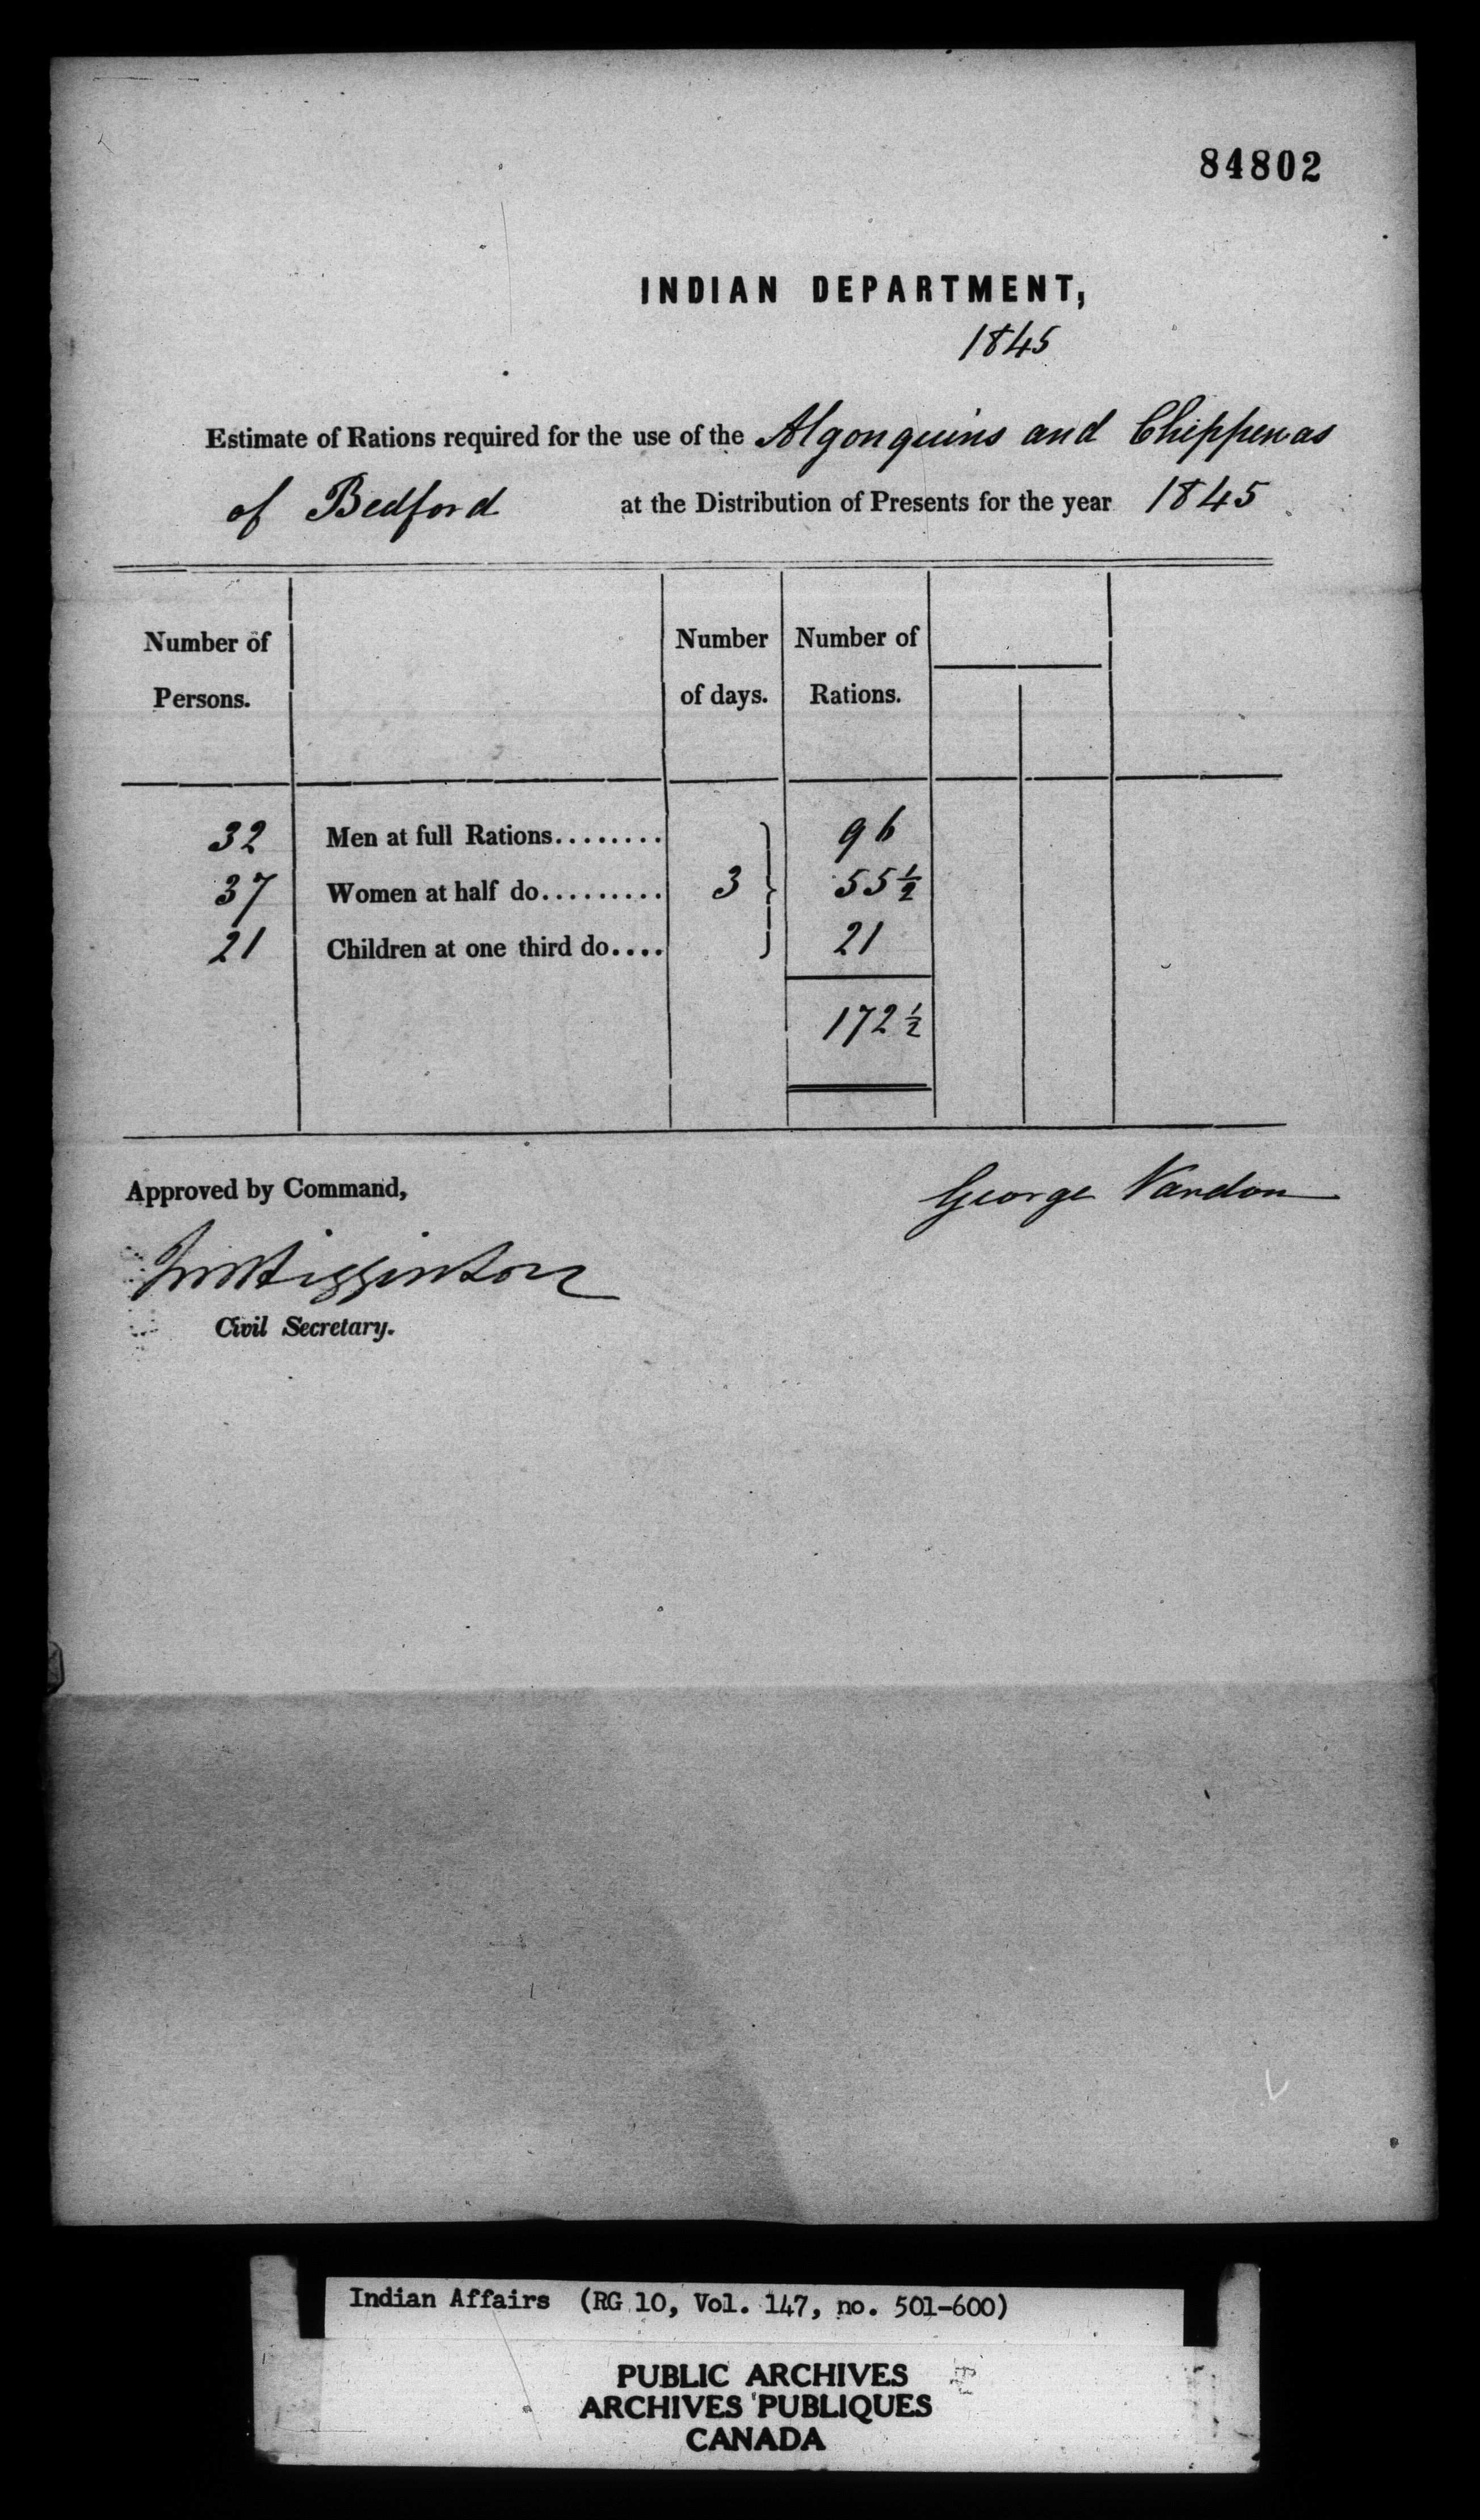 84802
INDIAN DEPARTMENT,
1845
Estimate of Rations required for the use of the Algonquins and Chippewas
of Bedford at the Distribution of Presents for the year 1845
Number of Persons. Number of days. Number of Rations.
32 Men at full Rations........ 96
37 Women at half do......... 3 55 1/2
21 Children at one third do.... 21
172 1/2
Approved by Command, George Vardon
JM Higginson
Civil Secretary.
Indian Affairs (RG 10, Vol. 147, no. 501-600)
PUBLIC ARCHIVES
ARCHIVES PUBLIQUES
CANADA